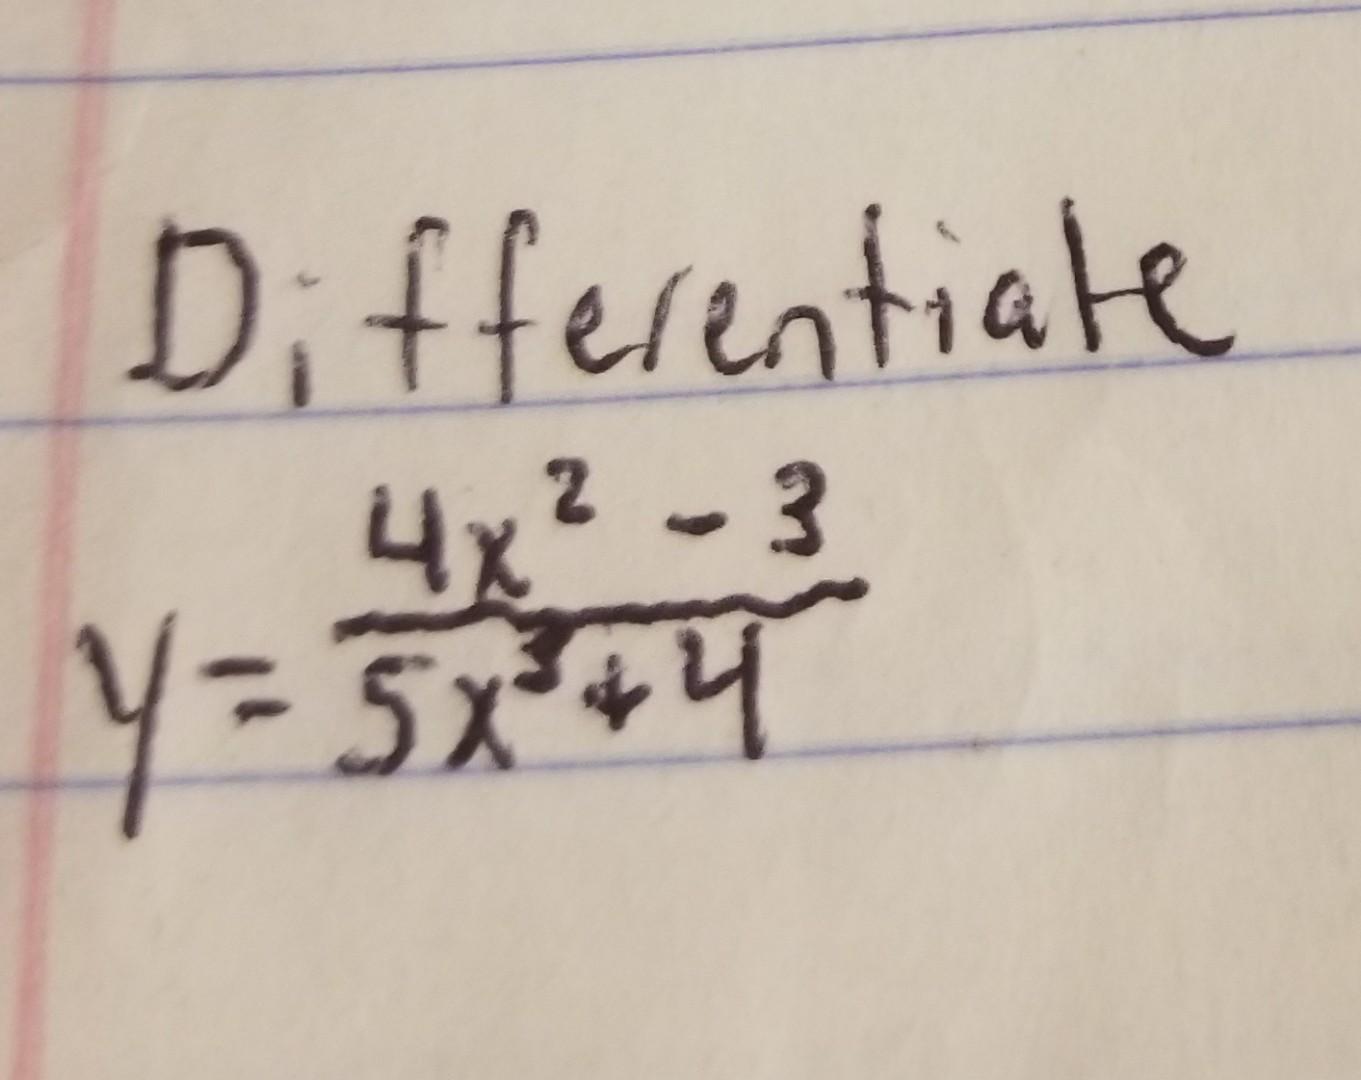 Differentiate
y = (4x² - 3)/(5x³ + 4)